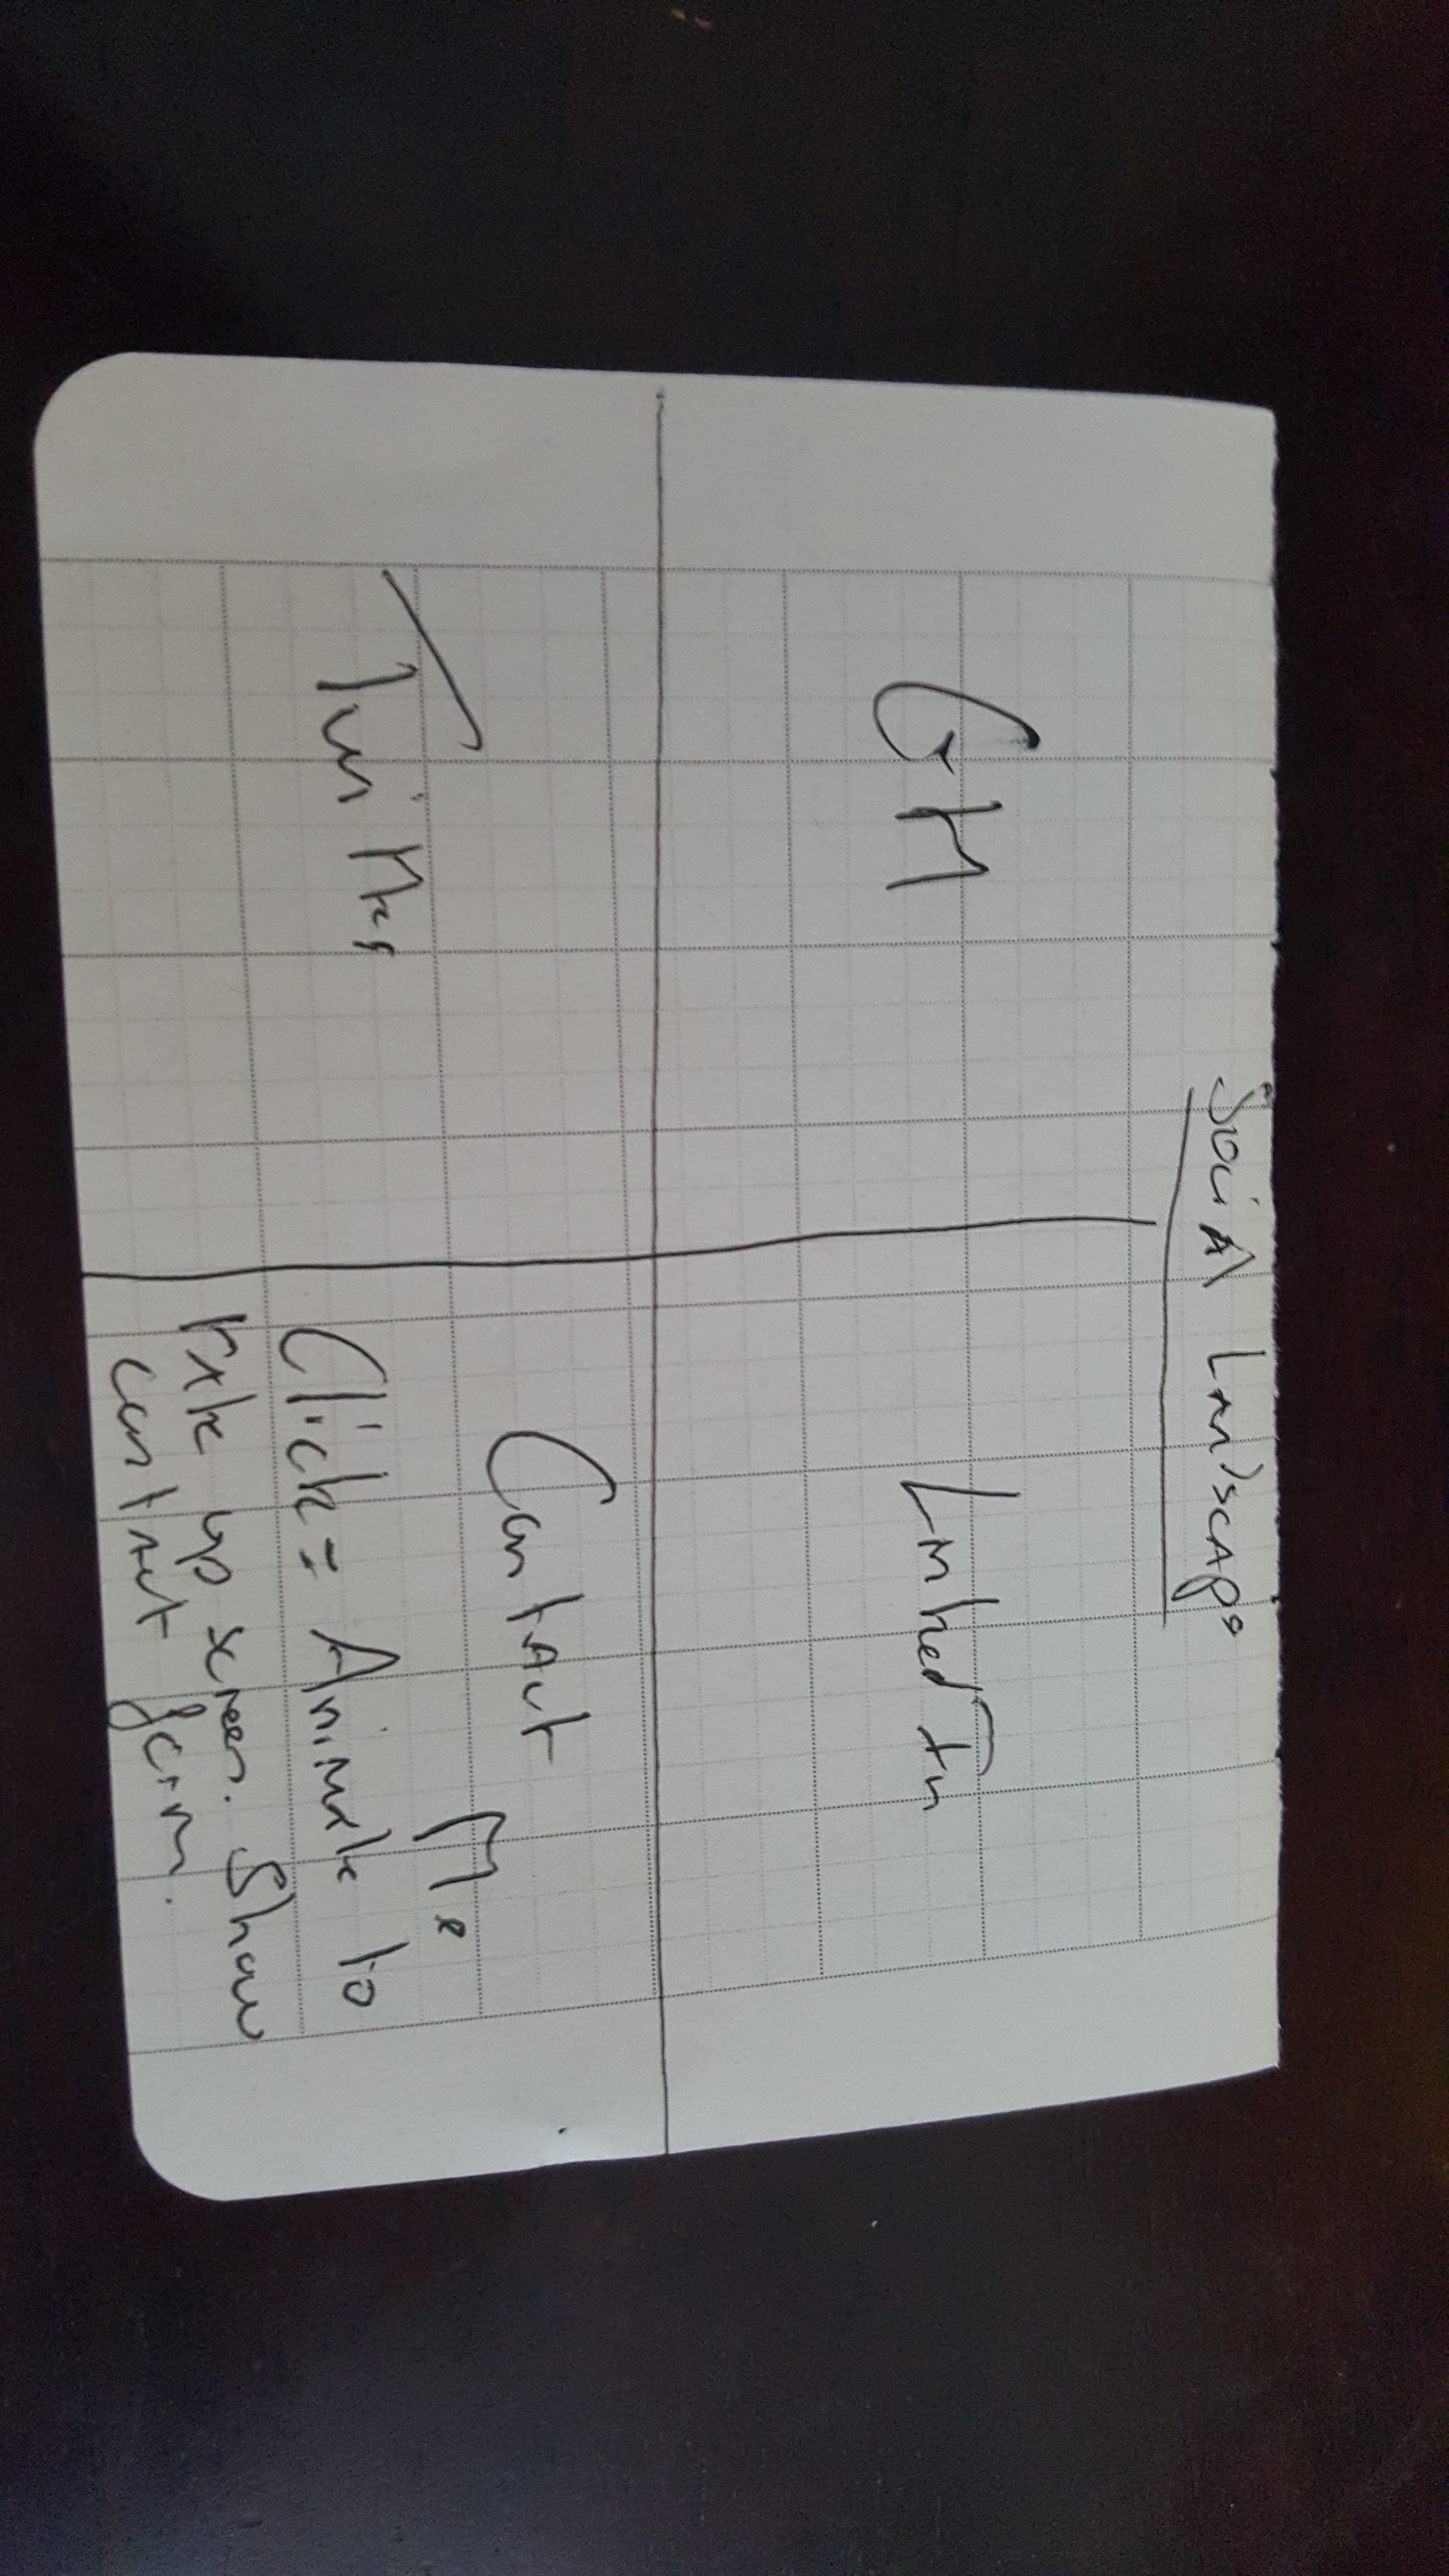 Social Landscape
GH
LinkedIn
Twitter
Contact Me
Click = Animate to
take up screen. Show
contact form.